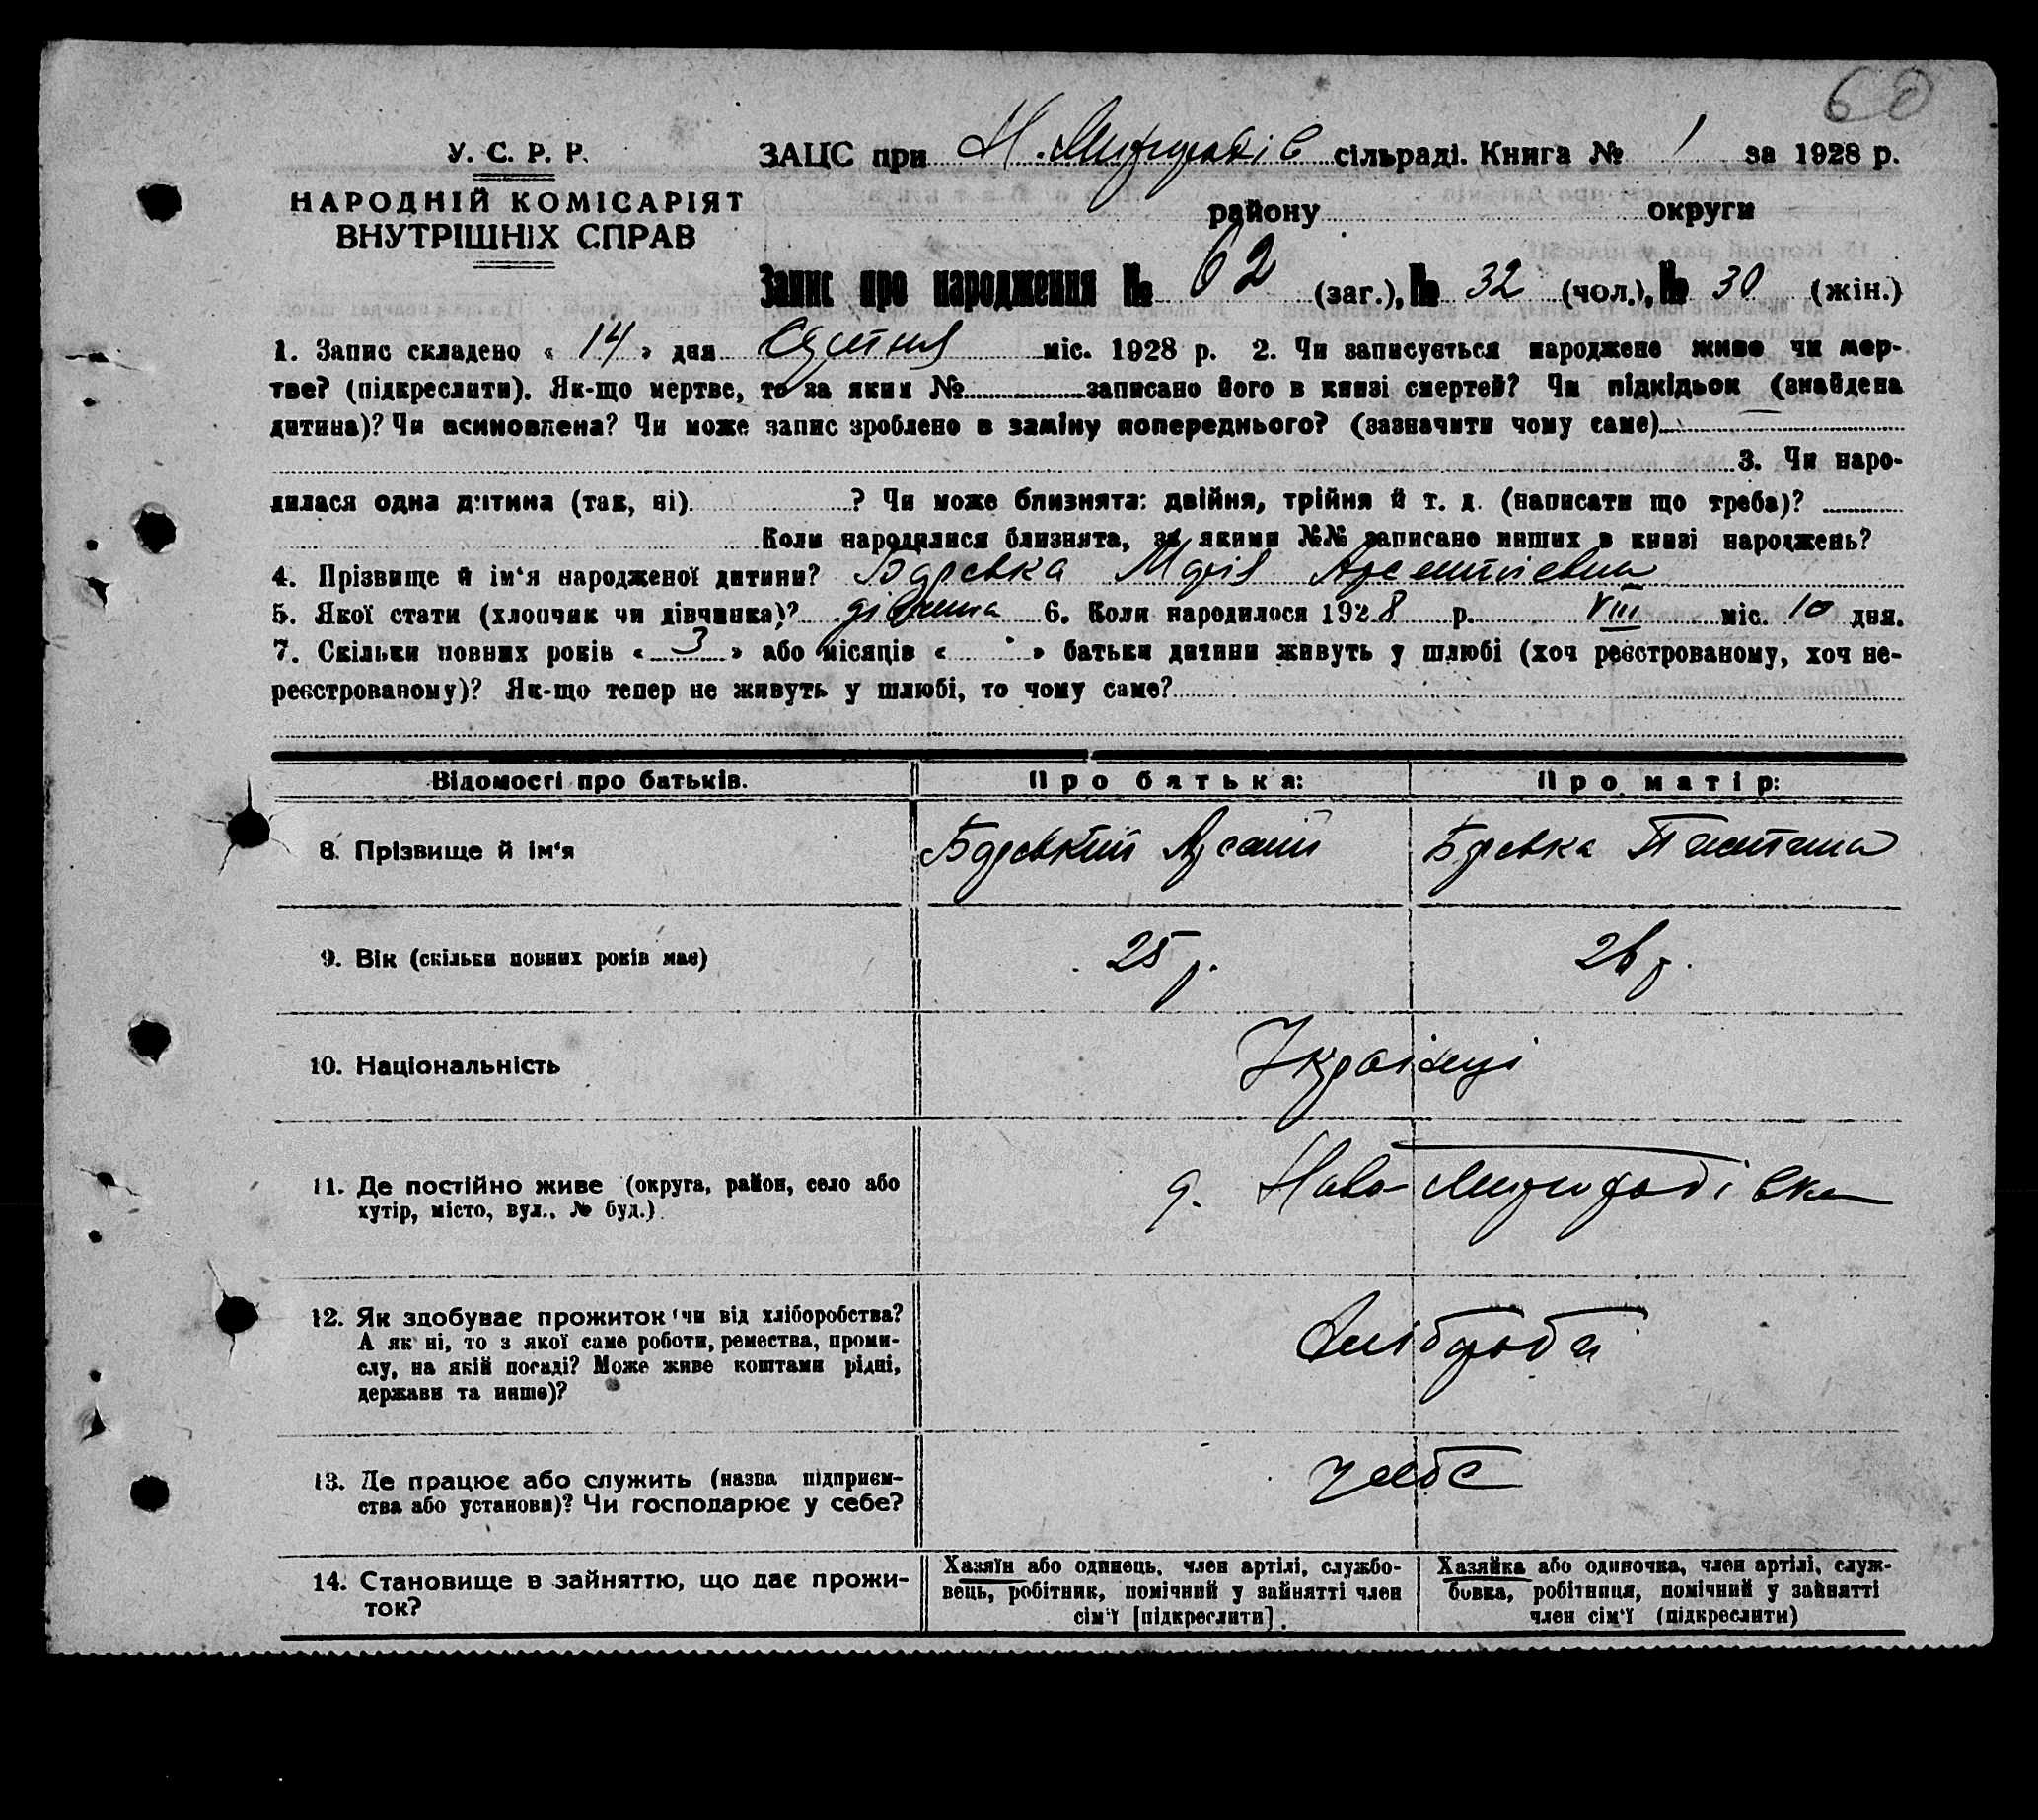 60
У. С. Р. Р.
НАРОДНІЙ КОМІСАРІЯТ
ВНУТРІШНІХ СПРАВ
ЗАЦС при Н. сільраді. Книга № 1 за 1928 р.
району округи
Запис про народження № 62 (заг.), № 32 (чол.), № 30 (жін.)
1. Запис складено « 14 » дня Серпня міс. 1928 р. 2. Чи записується народжене живе чи мер-
тве? (підкреслити). Як-що мертве, то за яким № записано його в книзі смертей? Чи підкідьок (знайдена
дитина)? Чи всиновлена? Чи може запис зроблено в заміну попереднього? (зазначити чому саме)
3. Чи наро-
дилася одна дитина (так, ні) ? Чи може близнята: двійня, трійня й т. д. (написати що треба)?
Коли народилися близнята, за якими №№ записано инших в книзі народжень?
4. Прізвище й ім'я народженої дитини? Марія
5. Якої стати (хлопчик чи дівчинка)? дівчина 6. Коли народилося 1928 р. VIII міс. 10 дня.
7. Скільки повних років « 3 » або місяців « » батьки дитини живуть у шлюбі (хоч реєстрованому, хоч не-
реєстрованому)? Як-що тепер не живуть у шлюбі, то чому саме?
Відомості про батьків. Про батька: Про матір:
8. Прізвище й ім'я
9. Вік (скільки повних років має) 25 р. 26 р.
10. Національність Українці
11. Де постійно живе (округа, район, село або
хутір, місто, вул., № буд.) Ново-Миргородівка
12. Як здобуває прожиток (чи від хліборобства?
А як ні, то з якої саме роботи, ремества, проми-
слу, на якій посаді? Може живе коштами рідні,
держави та инше)? Хлібороби
13. Де працює або служить (назва підприєм-
ства або установи)? Чи господарює у себе? у себе
14. Становище в зайняттю, що дає прожи-
ток?
Хазяїн або одинець, член артілі, службо-
вець, робітник, помічний у зайнятті член
сім'ї [підкреслити].
Хазяйка або одиночка, член артілі, служ-
бовка, робітниця, помічний у зайнятті
член сім'ї (підкреслити)